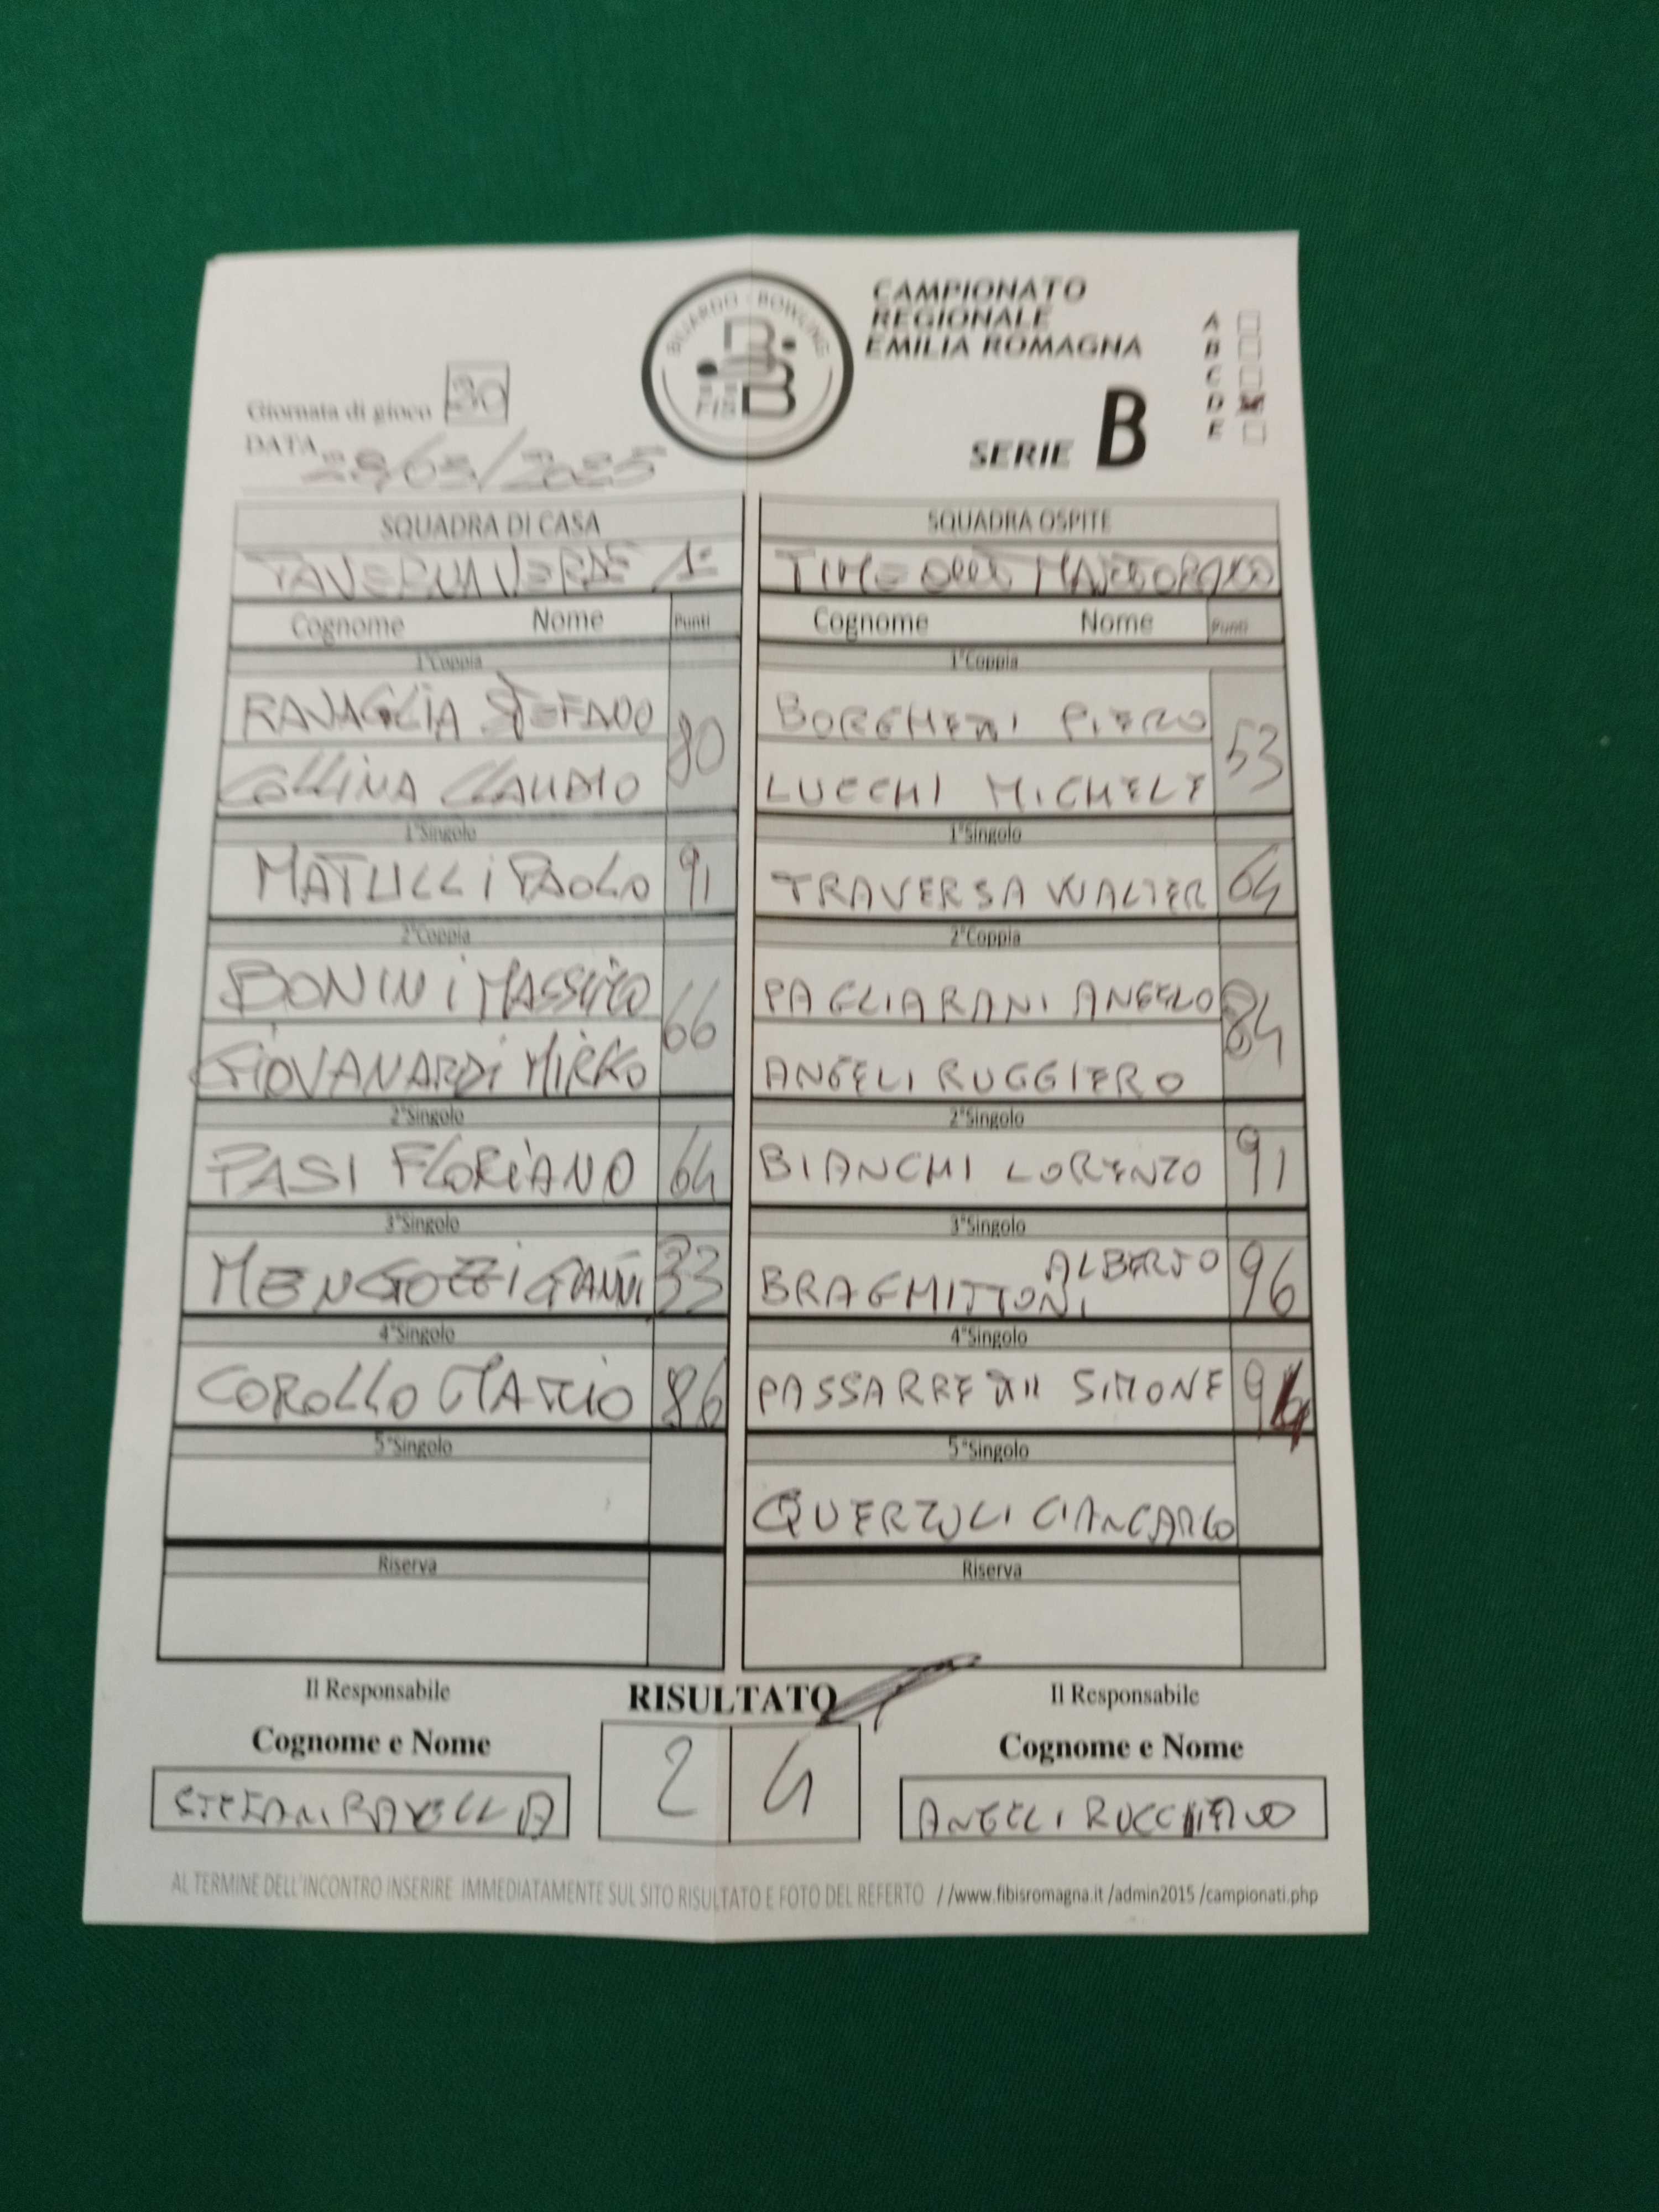 BILIARDO - BOWLING
FISBB
CAMPIONATO
REGIONALE
EMILIA ROMAGNA
SERIE B
A
B
C
D
E
Giornata di gioco 30
DATA
SQUADRA DI CASA SQUADRA OSPITE
TAVERNA VERDE 1° TIME
Cognome Nome Punti Cognome Nome Punti
1°Coppia 1°Coppia
RAVAGLIA STEFANO 80 BORGHETTI PIERO 53
COLLINA CLAUDIO LUCCHI MICHELE
1°Singolo 1°Singolo
MATULLI PAOLO 91 TRAVERSA WALTER 64
2°Coppia 2°Coppia
BONINI MASSIMO 66 PAGLIARANI ANGELO 84
GIOVANARDI MIRKO ANGELI RUGGIERO
2°Singolo 2°Singolo
PASI FLORIANO 64 BIANCHI LORENZO 91
3°Singolo 3°Singolo
MENGOZZI GIANNI 33 BRAGHITTONI ALBERTO 96
4°Singolo 4°Singolo
COROLLO MARIO 86 PASSARRETTI SIMONE
5°Singolo 5°Singolo
QUERZOLI GIANCARLO
Riserva Riserva
Il Responsabile RISULTATO Il Responsabile
Cognome e Nome 2 4 Cognome e Nome
ANGELI
AL TERMINE DELL'INCONTRO INSERIRE IMMEDIATAMENTE SUL SITO RISULTATO E FOTO DEL REFERTO //www.fibisromagna.it /admin2015 /campionati.php